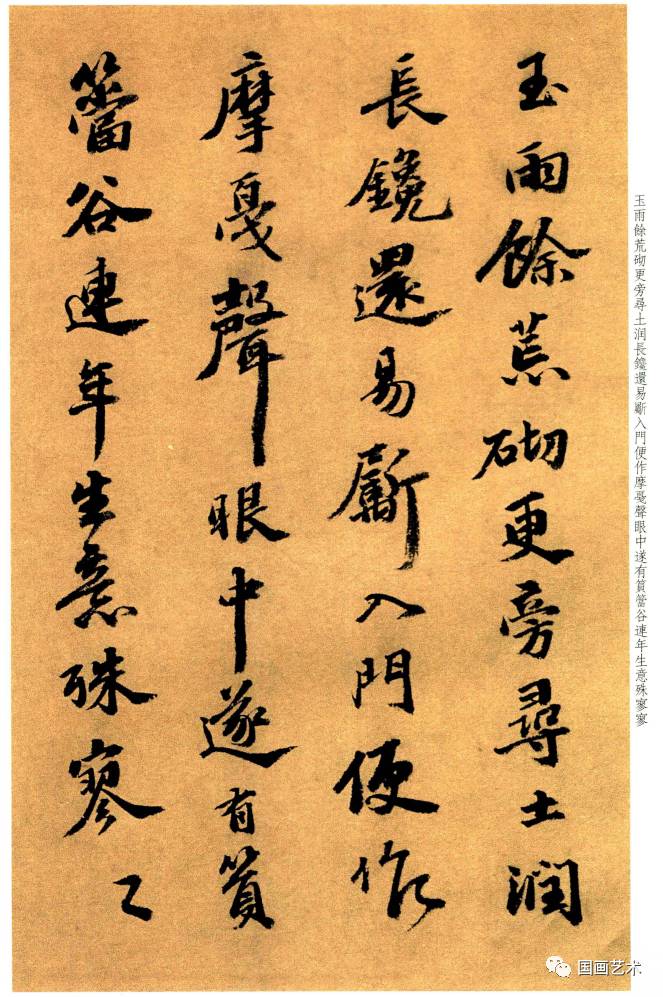 玉雨餘荒砌更旁尋土润
長鑱還易斸入門便作
摩戛聲眼中遂有篔
簹谷連年生意殊寥〻
玉雨餘荒砌更旁尋土润長鑱還易斸入門便作摩戛聲眼中遂有篔簹谷連年生意殊寥寥
国画艺术